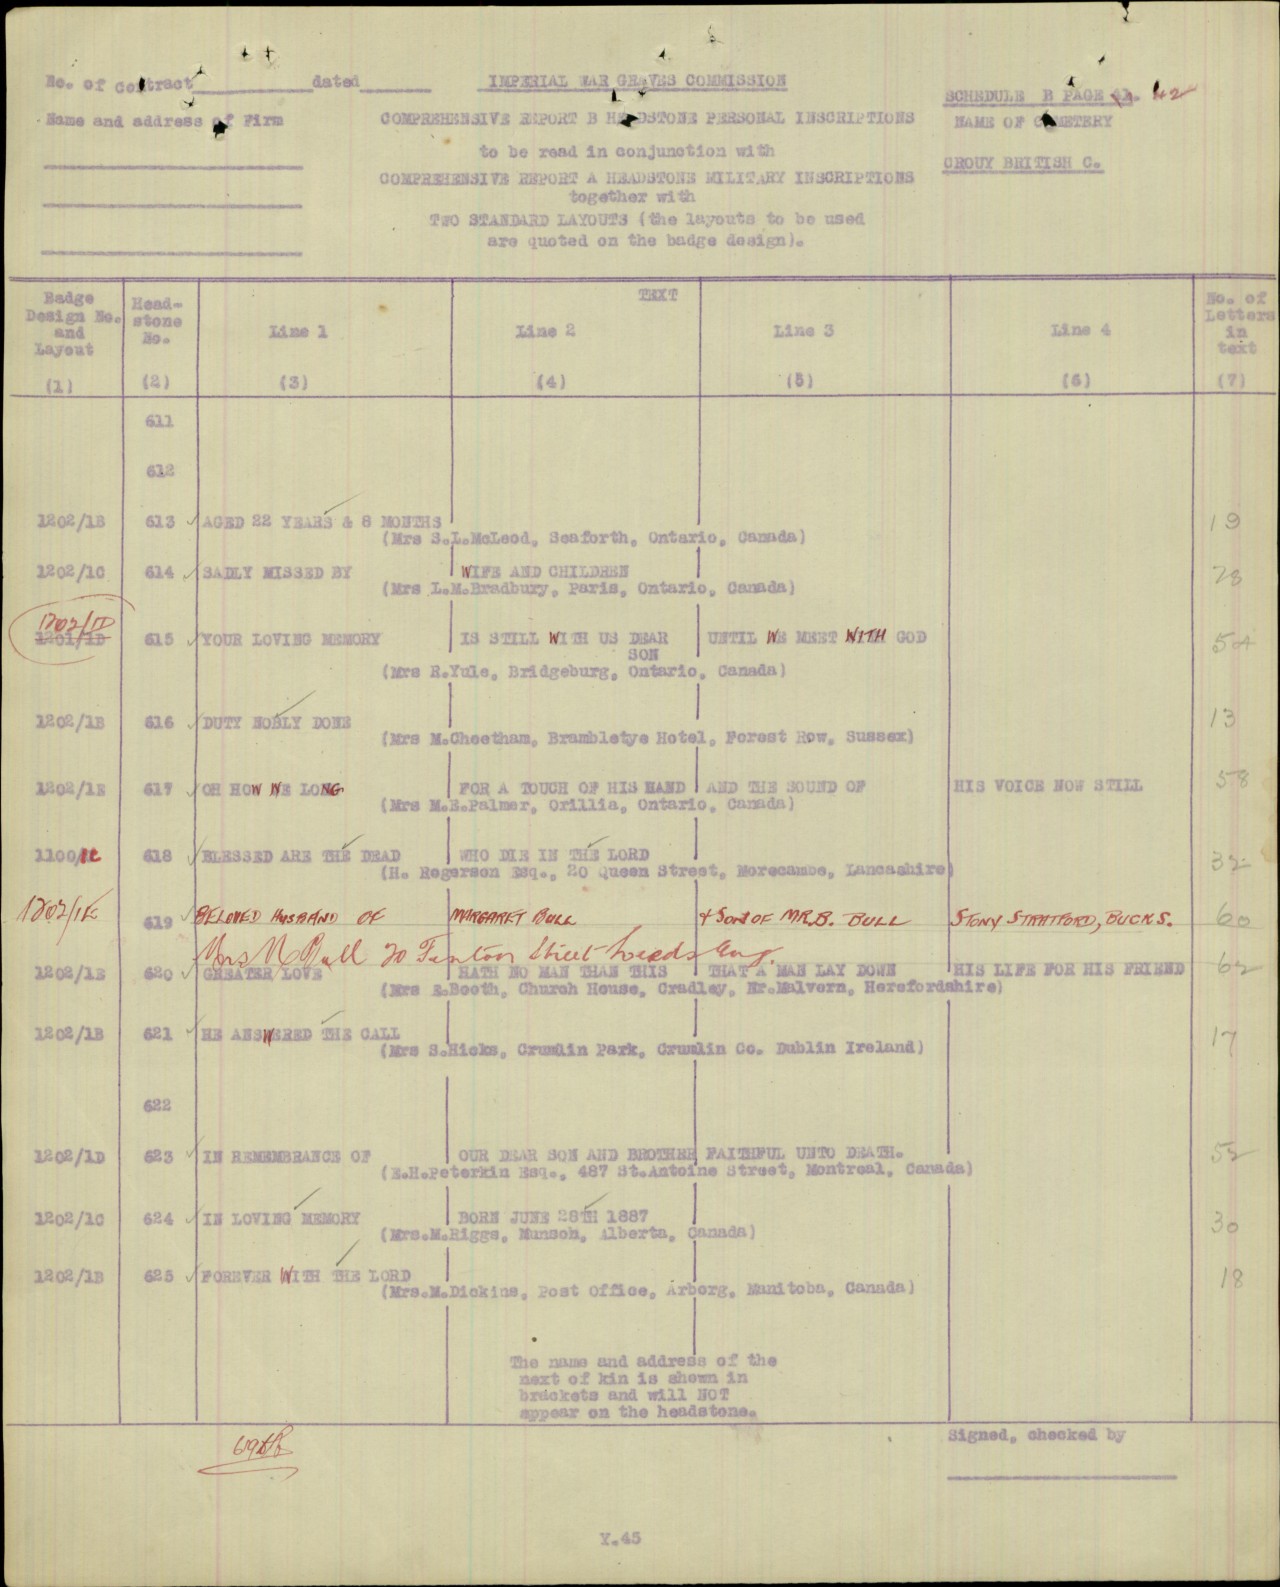 No. of Contract dated
Name and address of Firm
IMPERIAL WAR GRAVES COMMISSION
COMPREHENSIVE REPORT B HEADSTONE PERSONAL INSCRIPTIONS
to be read in conjunction with
COMPREHENSIVE REPORT A HEADSTONE MILITARY INSCRIPTIONS
together with
TWO STANDARD LAYOUTS (the layouts to be used
are quoted on the badge design).
SCHEDULE B PAGE 42
NAME OF CEMETERY
CROUY BRITISH C.
Badge Design No. and Layout (1)
Head-stone No. (2)
TEXT
Line 1 (3)
Line 2 (4)
Line 3 (5)
Line 4 (6)
No. of Letters in text (7)
611
612
1202/1B 613 AGED 22 YEARS & 8 MONTHS 19
(Mrs S.L.McLeod, Seaforth, Ontario, Canada)
1202/1C 614 SADLY MISSED BY WIFE AND CHILDREN 28
(Mrs L.M.Bradbury, Paris, Ontario, Canada)
1202/1D
1201/1D 615 YOUR LOVING MEMORY IS STILL WITH US DEAR SON UNTIL WE MEET WITH GOD 54
(Mrs R.Yule, Bridgeburg, Ontario, Canada)
1202/1B 616 DUTY NOBLY DONE 13
(Mrs M.Cheetham, Brambletye Hotel, Forest Row, Sussex)
1202/1E 617 OH HOW WE LONG FOR A TOUCH OF HIS HAND AND THE SOUND OF HIS VOICE NOW STILL 58
(Mrs M.E.Palmer, Orillia, Ontario, Canada)
1100/1C 618 BLESSED ARE THE DEAD WHO DIE IN THE LORD 32
(H. Rogerson Esq., 20 Queen Street, Morecambe, Lancashire)
1202/1E 619 BELOVED HUSBAND OF MARGARET BULL & SON OF MR.B. BULL STONY STRATFORD, BUCKS. 60
Mrs M Bull 20 Fenton Street Leeds Eng.
1202/1E 620 GREATER LOVE HATH NO MAN THAN THIS THAT A MAN LAY DOWN HIS LIFE FOR HIS FRIEND 62
(Mrs E.Booth, Church House, Cradley, Nr.Malvern, Herefordshire)
1202/1B 621 HE ANSWERED THE CALL 17
(Mrs S.Hicks, Crumlin Park, Crumlin Co. Dublin Ireland)
622
1202/1D 623 IN REMEMBRANCE OF OUR DEAR SON AND BROTHER FAITHFUL UNTO DEATH. 52
(E.H.Peterkin Esq., 487 St.Antoine Street, Montreal, Canada)
1202/1C 624 IN LOVING MEMORY BORN JUNE 28TH 1887 30
(Mrs.M.Higgs, Munson, Alberta, Canada)
1202/1B 625 FOREVER WITH THE LORD 18
(Mrs.M.Dickins, Post Office, Arborg, Manitoba, Canada)
The name and address of the
next of kin is shown in
brackets and will NOT
appear on the headstone.
Signed, checked by
Y.45